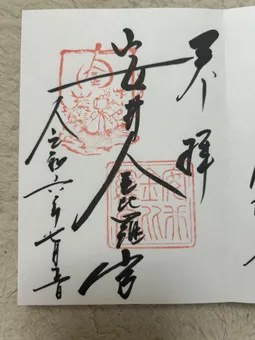 奉拝
安井金比羅宮
令和六年七月